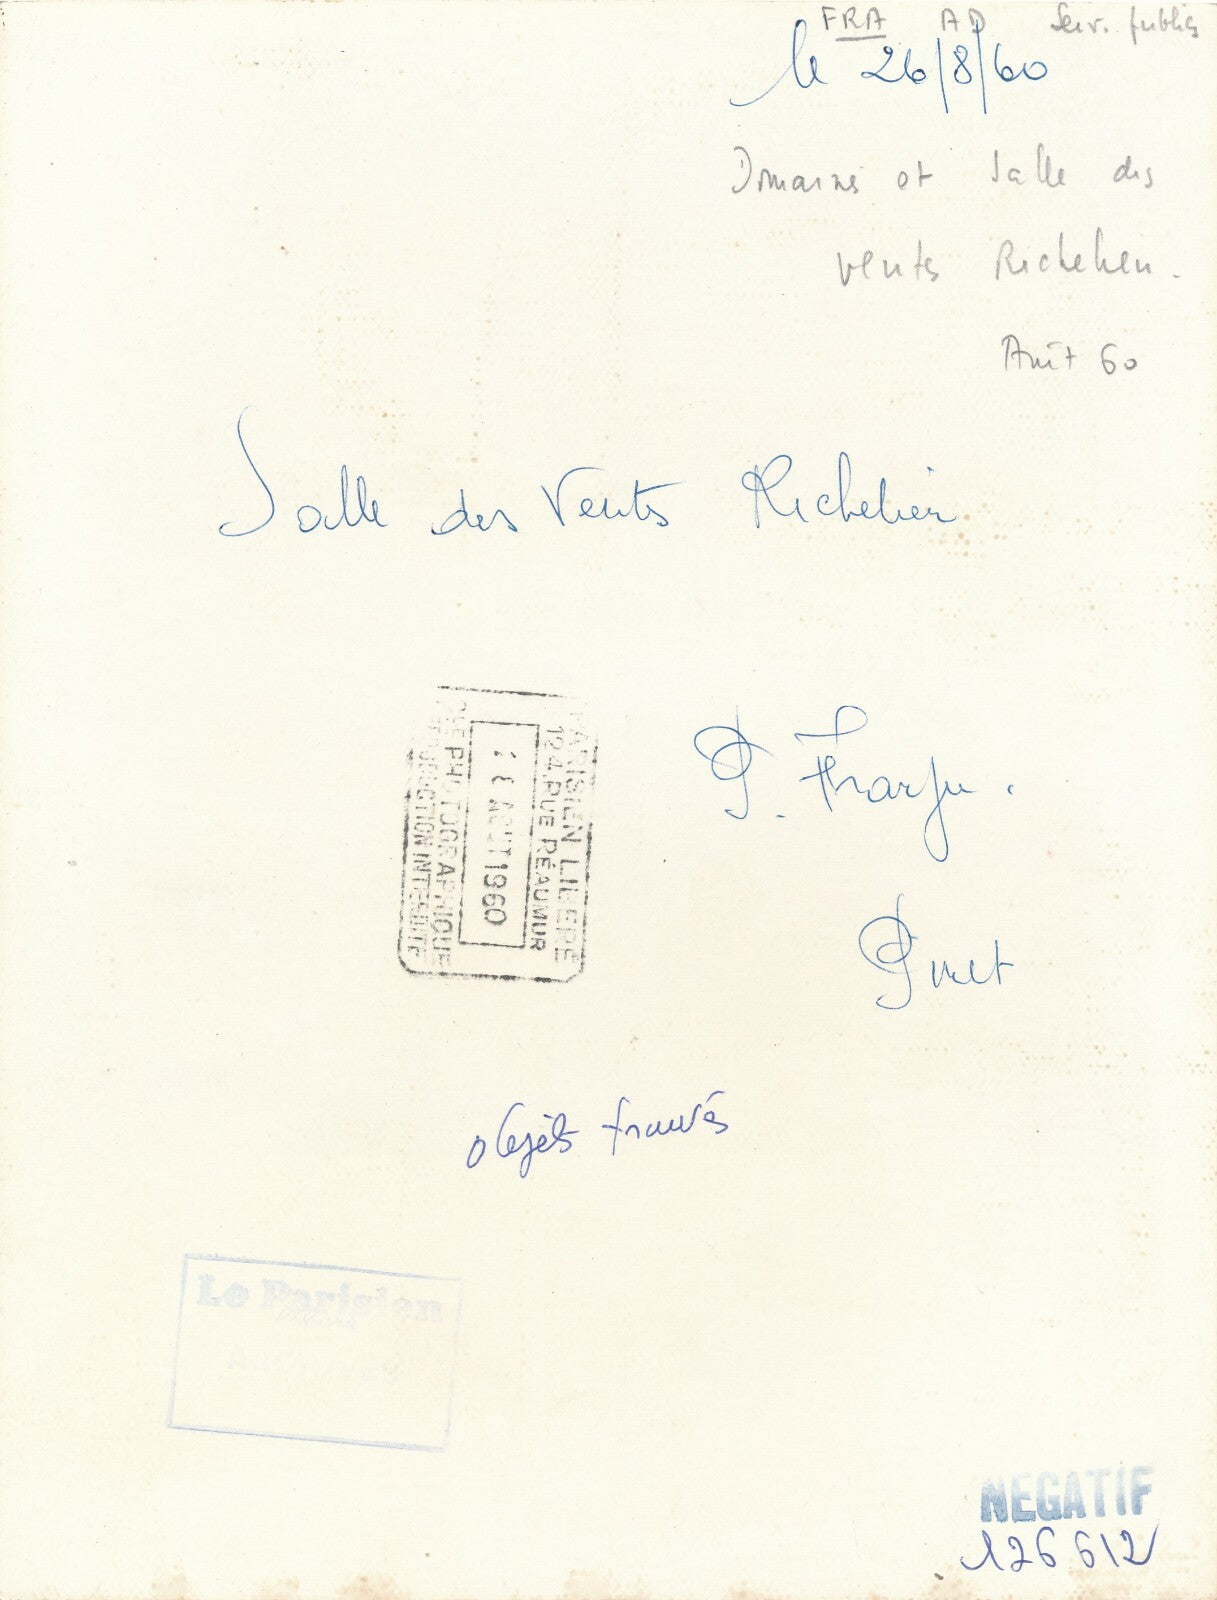 FRA AD Serv. publics
le 26/8/60
Domaines et Salle des
ventes Richelieu.
Août 60
Salle des Ventes Richelieu
PARISIEN LIBERE
124, RUE RÉAUMUR
AOUT 1960
PHOTOGRAPHIQUE
REPRODUCTION INTERDITE
P.
objets trouvés
Le Parisien
NEGATIF
126612